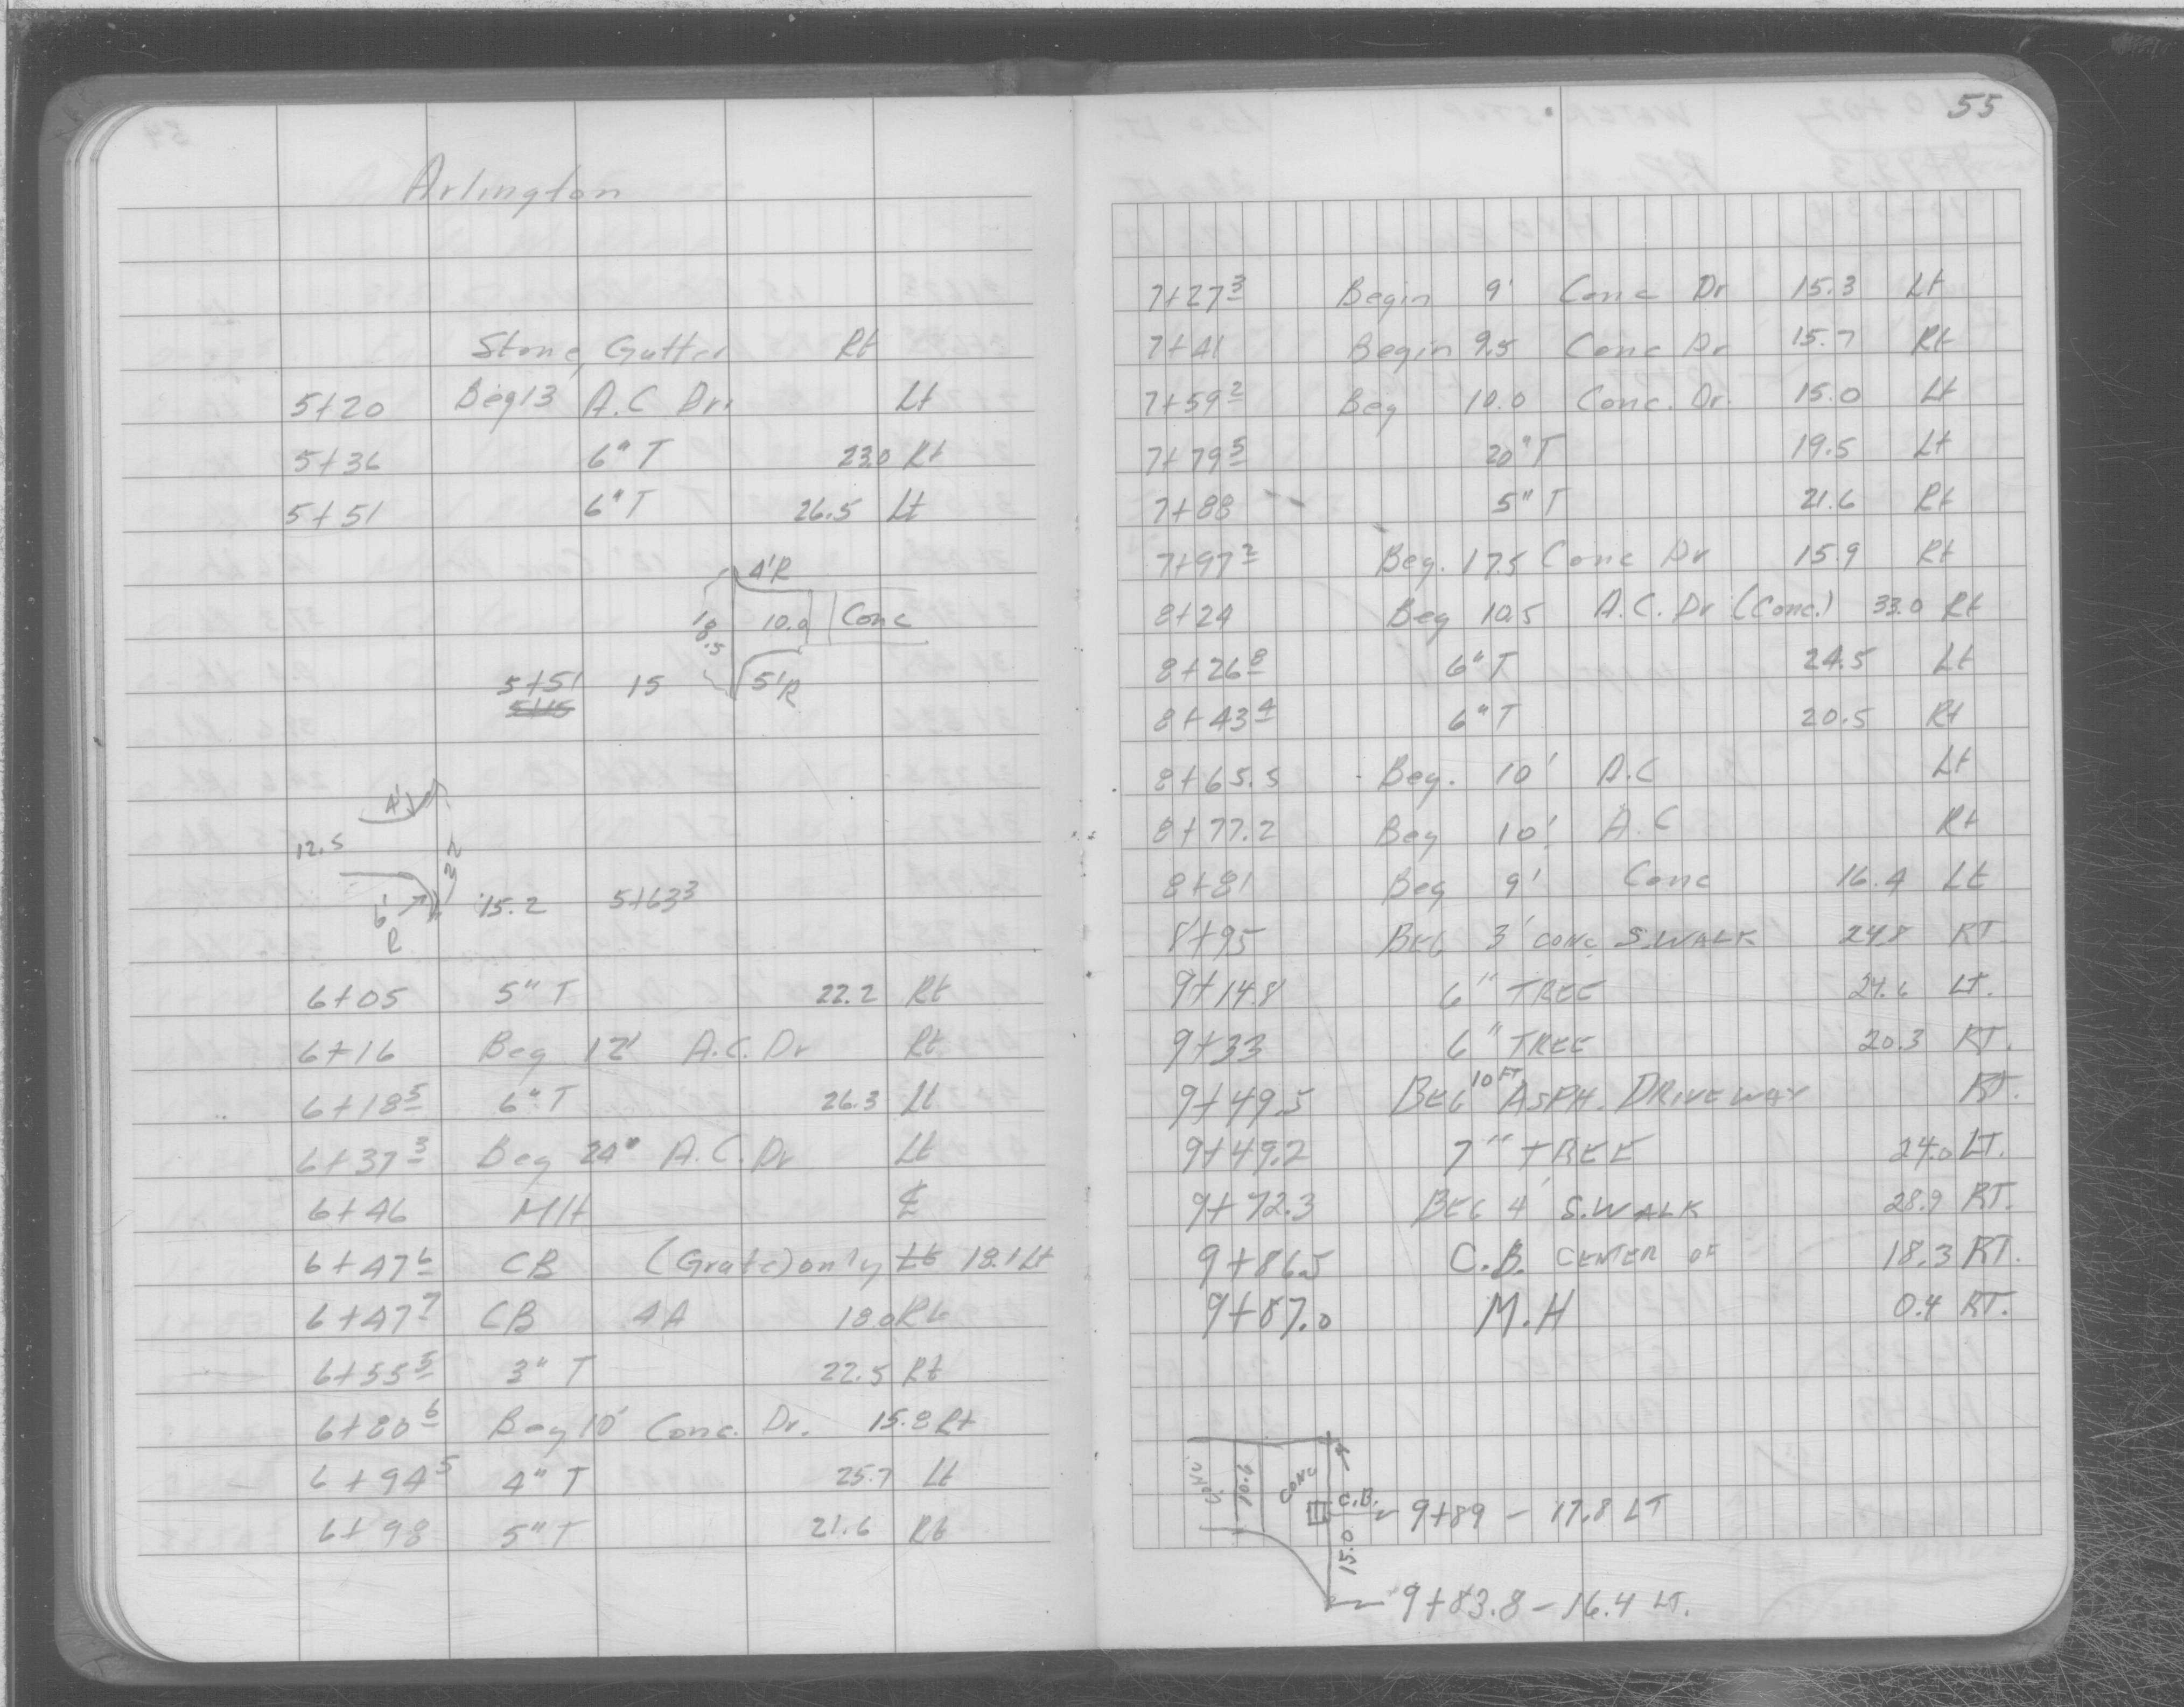 Arlington
Stone Gutter Rt
5+20 Beg 13 A.C Dr. Lt
5+36 6" T 23.0 Rt
5+51 6" T 26.5 Lt
4'R
18.5 10.0 Conc
5+51 15 5'R
5+15
4'
12.5 22
6' R 15.2 5+63³
6+05 5" T 22.2 Rt
6+16 Beg 12' A.C. Dr Rt
6+18⁵ 6" T 26.3 Lt
6+37³ Beg 20" A.C. Dr Lt
6+46 MH ℄
6+47⁶ CB (Grate) only Lt 18.1 Lt
6+47⁷ CB 4A 18.0 Rt
6+55⁵ 3" T 22.5 Rt
6+80⁶ Beg 10' Conc. Dr. 15.8 Rt
6+94⁵ 4" T 25.7 Lt
6+98 5" T 21.6 Rt
55
7+27³ Begin 9' Conc Dr 15.3 Lt
7+41 Begin 9.5 Conc Dr 15.7 Rt
7+59² Beg 10.0 Conc. Dr. 15.0 Lt
7+79⁵ 20" T 19.5 Lt
7+88 5" T 21.6 Rt
7+97² Beg. 17.5 Conc Dr 15.9 Rt
8+24 Beg 10.5 A.C. Dr (Conc.) 33.0 Rt
8+26⁸ 6" T 24.5 Lt
8+43⁴ 6" T 20.5 Rt
8+65.5 Beg. 10' A.C Lt
8+77.2 Beg 10' A.C Rt
8+81 Beg 9' Conc 16.4 Lt
8+95 BEG 3' CONC. S.WALK 24.8 RT.
9+14.8 6" TREE 24.6 LT.
9+33 6" TREE 20.3 RT.
9+49.5 BEG 10 FT ASPH. DRIVEWAY RT.
9+49.2 7" TREE 24.0 LT.
9+72.3 BEG 4' S.WALK 28.9 RT.
9+86.5 C.B. CENTER OF 18.3 RT.
9+87.0 M.H 0.4 RT.
CONC. 10.6 CONC C.B. 9+89 - 17.8 LT
15.0
9+83.8 - 16.4 LT.